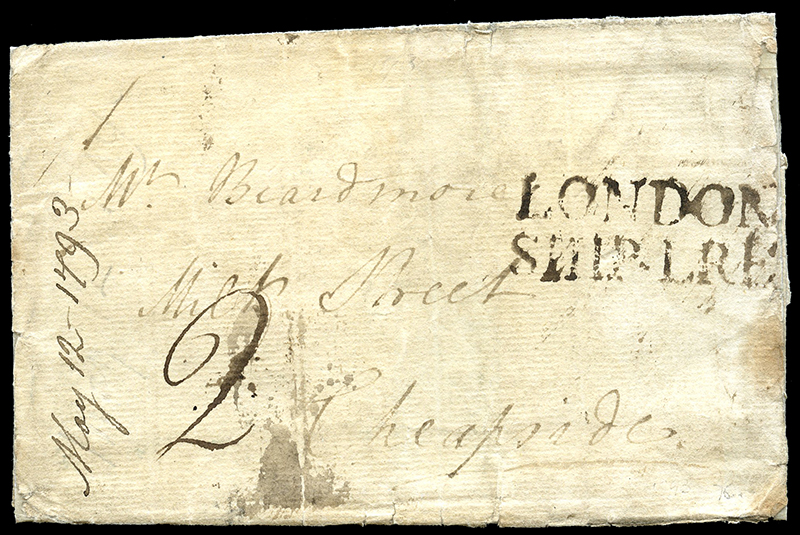 Mr. Beardmore
Milk Street
Cheapside.
2
May 12-1793-
LONDON
SHIP-LRE